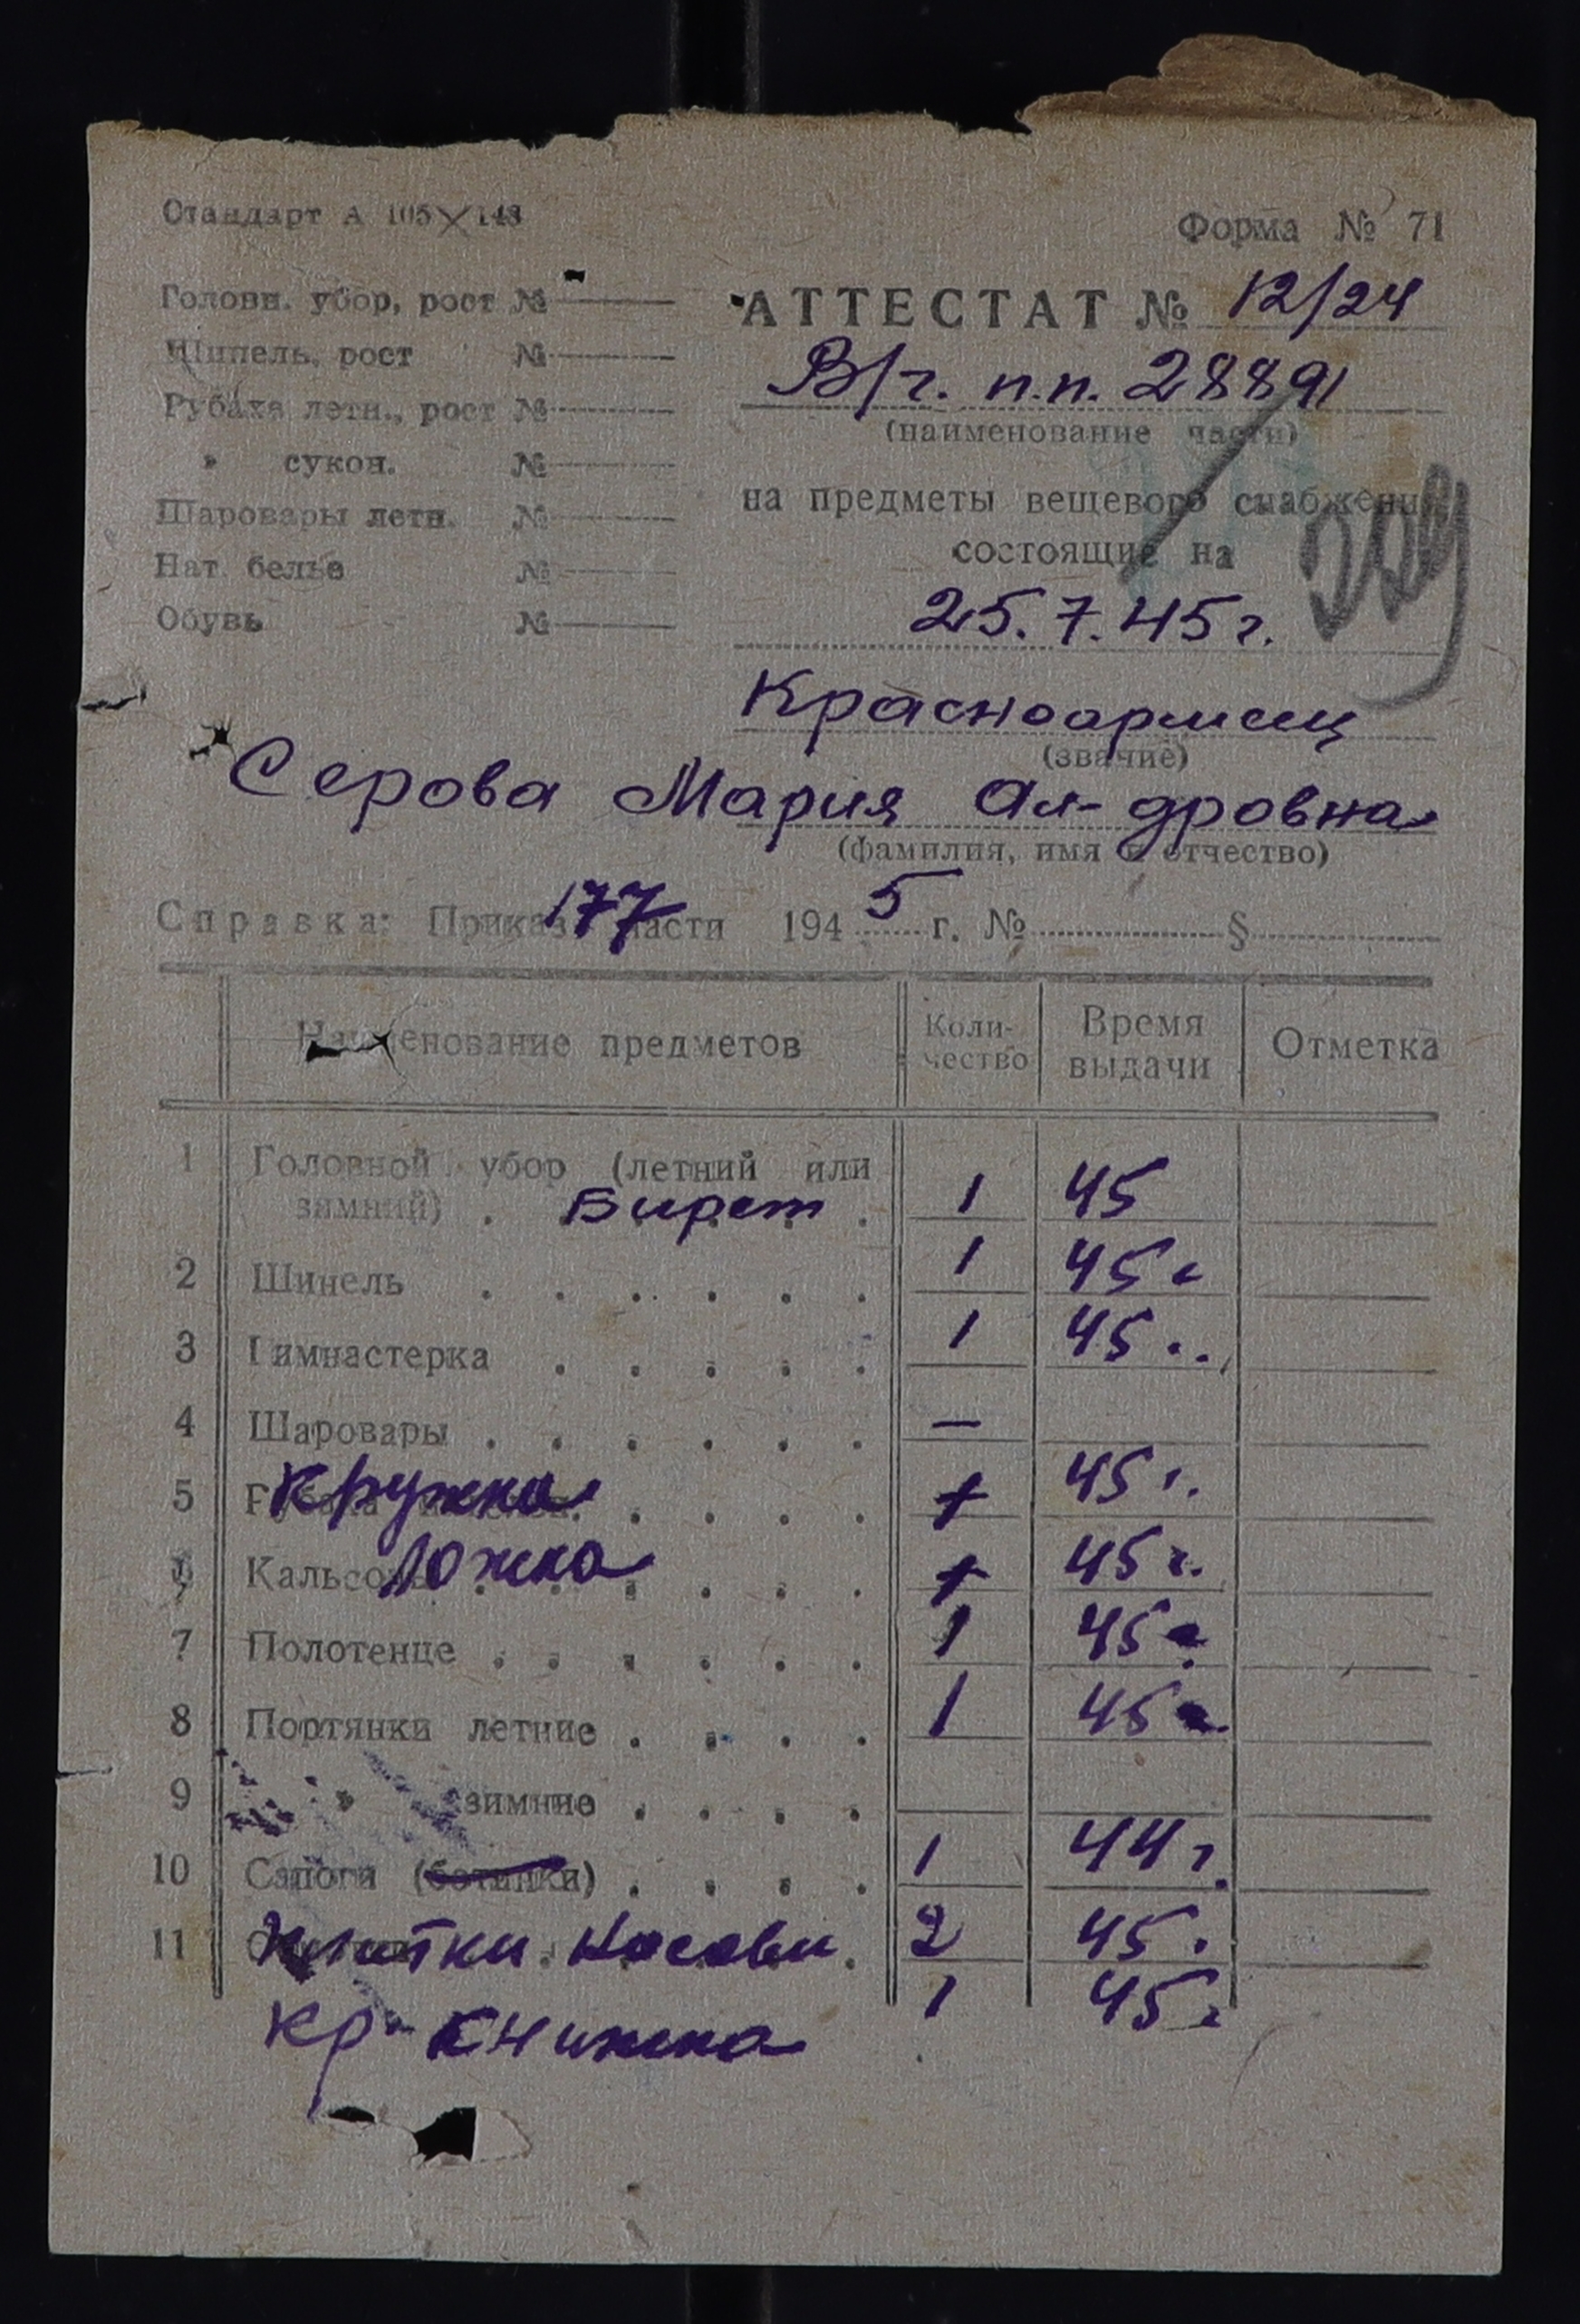 Стандарт А 105×148
Форма № 71
Головн. убор, рост №
Шинель, рост №
Рубаха летн., рост №
" сукон. №
Шаровары летн. №
Нат. белье №
Обувь №
АТТЕСТАТ № 12/24
В/ч. п.п. 28891
(наименование части)
на предметы вещевого снабжения
состоящие на
25.7.45г.
Красноармеец
(звание)
Серова Мария Ал-дровна
(фамилия, имя и отчество)
Справка: Приказ 177 части 1945 г. № §
Наименование предметов Коли-чество Время выдачи Отметка
1 Головной убор (летний или
зимний) . Бирет 1 45
2 Шинель 1 45 г
3 Гимнастерка 1 45 г.
4 Шаровары —
5 Кружка 1 45 г.
6 Кальсоны Ложка 1 45 г.
7 Полотенце 1 45 г.
8 Портянки летние 1 45 г.
9 " зимние
10 Сапоги (ботинки) 1 44 г.
11 Платки носовы 2 45 г.
Кр-книжка 1 45 г.